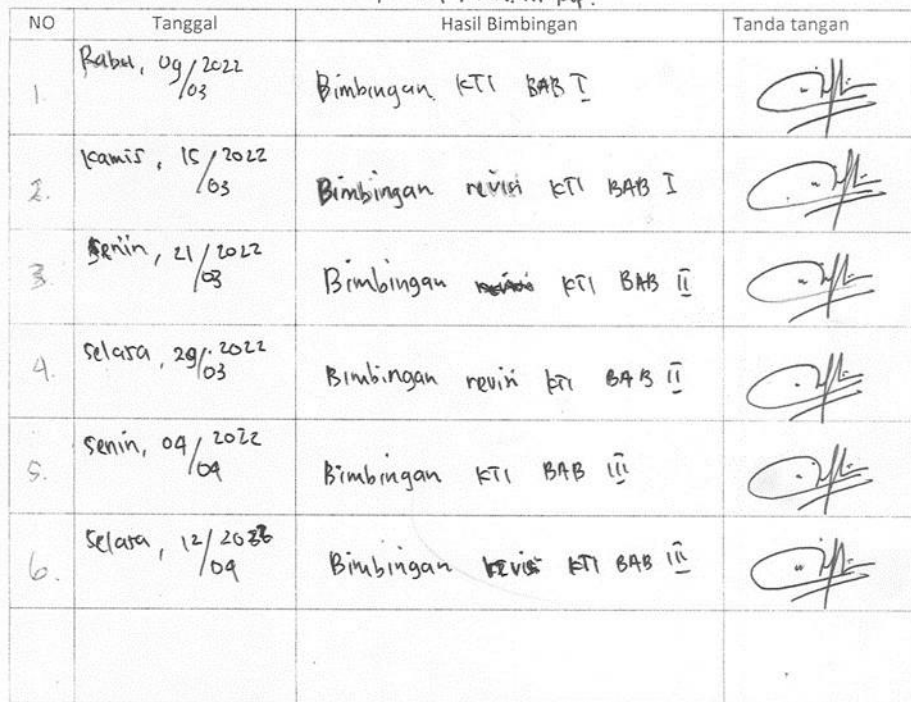 NO Tanggal Hasil Bimbingan Tanda tangan
1. Rabu, 09/03 2022 Bimbingan KTI BAB I
2. Kamis, 15/03 2022 Bimbingan revisi KTI BAB I
3. Senin, 21/03 2022 Bimbingan KTI BAB II
4. Selasa, 29/03 2022 Bimbingan revisi KTI BAB II
5. Senin, 04/04 2022 Bimbingan KTI BAB III
6. Selasa, 12/04 2022 Bimbingan revisi KTI BAB III